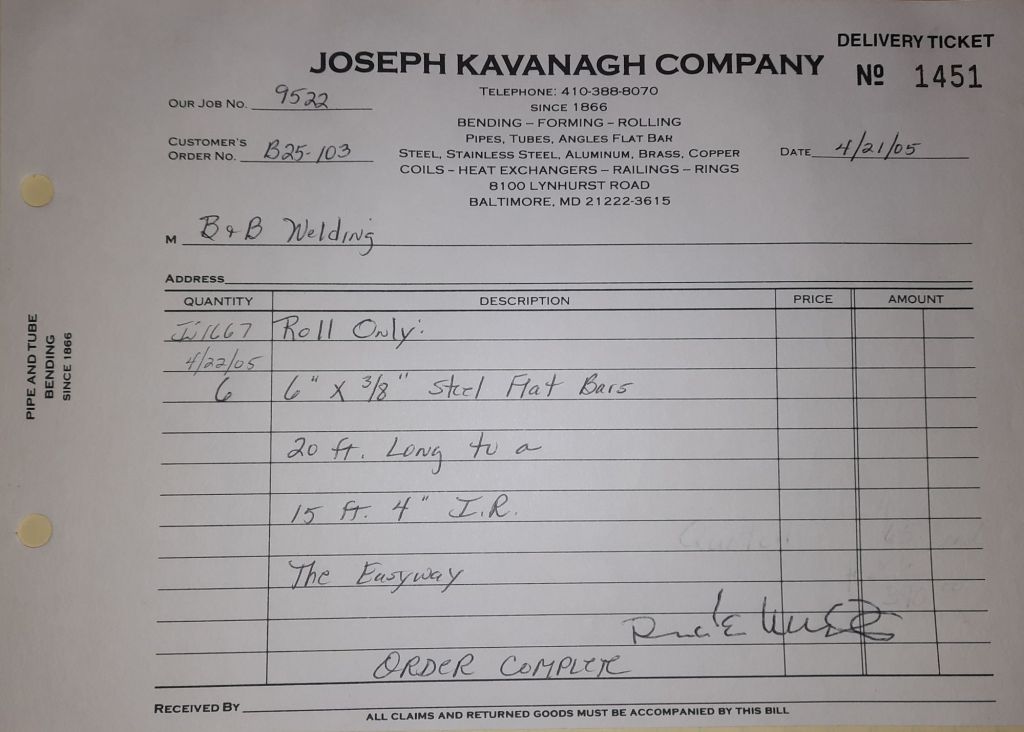 DELIVERY TICKET
JOSEPH KAVANAGH COMPANY
Nº 1451
TELEPHONE: 410-388-8070
SINCE 1866
BENDING – FORMING – ROLLING
PIPES, TUBES, ANGLES FLAT BAR
STEEL, STAINLESS STEEL, ALUMINUM, BRASS, COPPER
COILS – HEAT EXCHANGERS – RAILINGS – RINGS
8100 LYNHURST ROAD
BALTIMORE, MD 21222-3615
OUR JOB NO. 9522
CUSTOMER'S
ORDER NO. B25-103
DATE 4/21/05
M B & B Welding
ADDRESS
QUANTITY DESCRIPTION PRICE AMOUNT
1667 Roll Only:
4/22/05
6 6" X 3/8" Steel Flat Bars
20 ft. Long to a
15 ft. 4" I.R.
The Easyway
ORDER COMPLETE
RECEIVED BY
ALL CLAIMS AND RETURNED GOODS MUST BE ACCOMPANIED BY THIS BILL
PIPE AND TUBE
BENDING
SINCE 1866